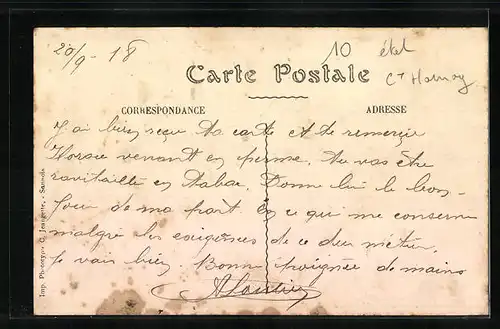 20/9 - 18
10 état
Cn Hornoy
Carte Postale
CORRESPONDANCE
ADRESSE
J'ai bien reçu ta carte et te remercie
venant en perme. Tu vas être
ravitaillé en tabac. Donne lui le bon-
jour de ma part. En ce qui me concerne
malgré les exigences de ce dur métier,
je vais bien. Bonne poignée de mains
Imp. Phototypie C. - Saumur